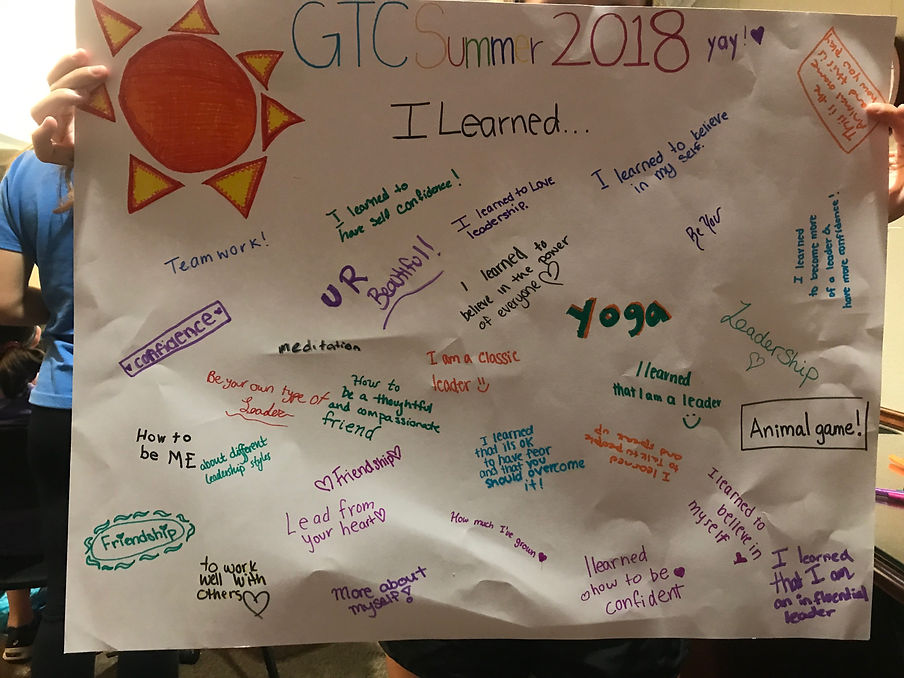 GTC Summer 2018 yay!
I Learned...
This is the
Animal game
and this is
how you
play
I learned to
have self confidence!
I learned to Love
leadership.
I learned to believe
in my self.
Teamwork!
UR
Beautiful!!
I learned to
believe in the power
of everyone
Be You
I learned
to become more
of a leader &
have more confidence!
confidence
meditation
yoga
Leadership
Be your own type of
Leader
How to
be a thoughtful
and compassionate
friend
I am a classic
leader
I learned
that I am a leader
Animal game!
How to
be ME
about different
leadership styles
Friendship
I learned
that its OK
to have fear
and that you
should overcome
it!
I learned
to talk to people
and speak up
I learned to
believe in
myself
Friendship
Lead from
your heart
How much I've grown
to work
well with
others
More about
myself!
I learned
how to be
confident
I learned
that I am
an influential
leader